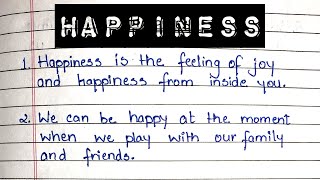 HAPPINESS
1. Happiness is the feeling of joy
and happiness from inside you.
2. We can be happy at the moment
when we play with our family
and friends.